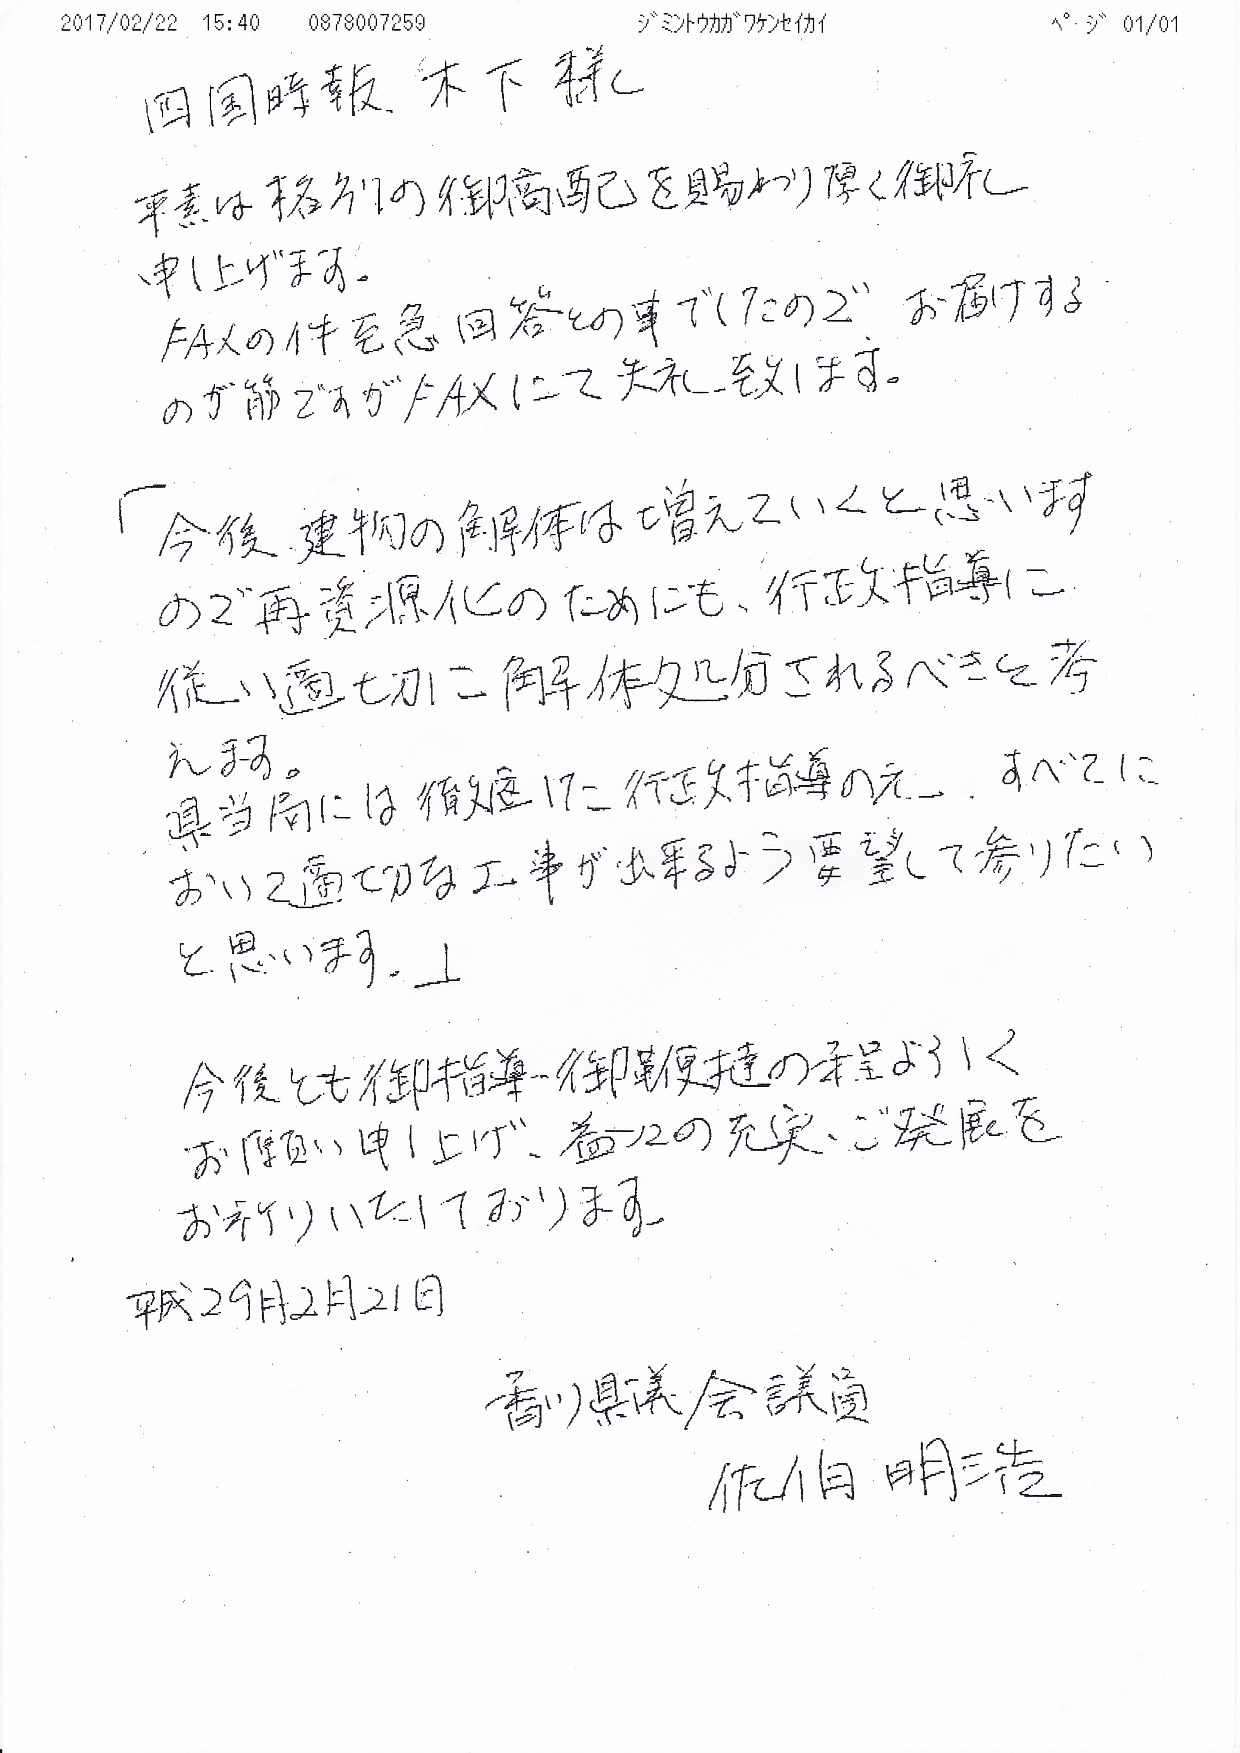 2017/02/22 15:40 0878007259 ｼﾞﾐﾝﾄｳｶｶﾞﾜｹﾝｾｲｶｲ ﾍﾟｰｼﾞ 01/01
四国時報 木下様
平素は格別の御高配を賜わり厚く御礼
申し上げます。
FAXの件至急回答との事でしたので、お届けする
のが筋ですがFAXにて失礼致します。
「今後、建物の解体は増えていくと思います
ので再資源化のためにも、行政指導に
従い適切に解体処分されるべきと考
えます。
県当局には徹底した行政指導の元、すべてに
おいて適切な工事が出来るよう要望して参りたい
と思います。」
今後とも御指導・御鞭撻の程よろしく
お願い申し上げ、益々の充実、ご発展を
お祈りいたしております。
平成29月2月21日
香川県議会議員
佐伯明浩